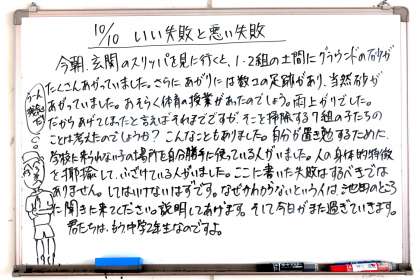 10/10 いい失敗と悪い失敗
今朝、玄関のスリッパを見に行くと、1・2組の土間にグラウンドの砂が
たくさんあがっていました。さらにあがりには数コの足跡があり、当然砂が
あがっていました。おそらく体育の授業があったのでしょう。雨上がりでした。
だからあげてしまったと言えばそれまでですが、そこを掃除する7組の子たちの
ことは考えたのでしょうか？こんなこともありました。自分が置き勉するために、
学校に来られない子の場所を自分勝手に使っている人がいました。人の身体的特徴
を揶揄して、ふざけている人がいました。ここに書いた失敗はするべきでは
ありません。してはいけないはずです。なぜかわからないという人は池田のところ
に聞きに来てください。説明してあげます。そして今日がまた過ぎていきます。
君たちは、もう中学2年生なのですよ。